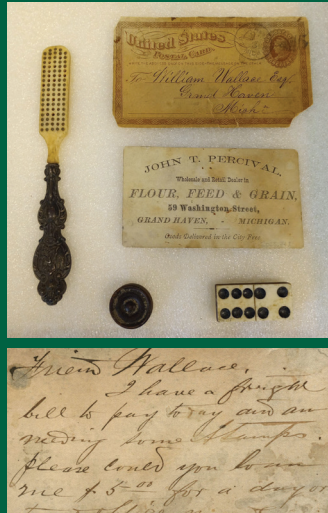 United States
Postal Card.
To William Wallace Esq
Grand Haven
Mich.
JOHN T. PERCIVAL,
Wholesale and Retail Dealer in
FLOUR, FEED & GRAIN,
59 Washington Street,
GRAND HAVEN, - MICHIGAN.
Goods Delivered in the City Free
Friend Wallace,
I have a freight
bill to pay today and am
needing some stamps.
Please could you loan
me $5.00 for a day or